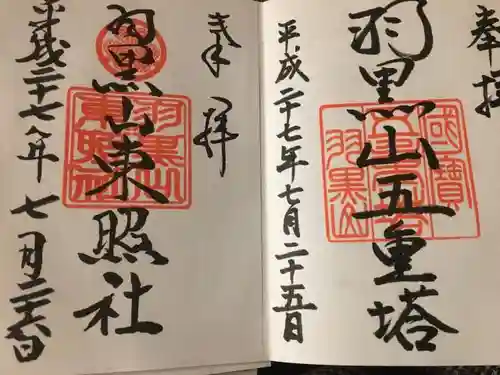 奉拝
羽黒山五重塔
國寶
五重塔
羽黒山
平成二十七年七月二十五日
奉拝
羽黒山東照社
羽黒山
東照社
平成二十七年七月二十日